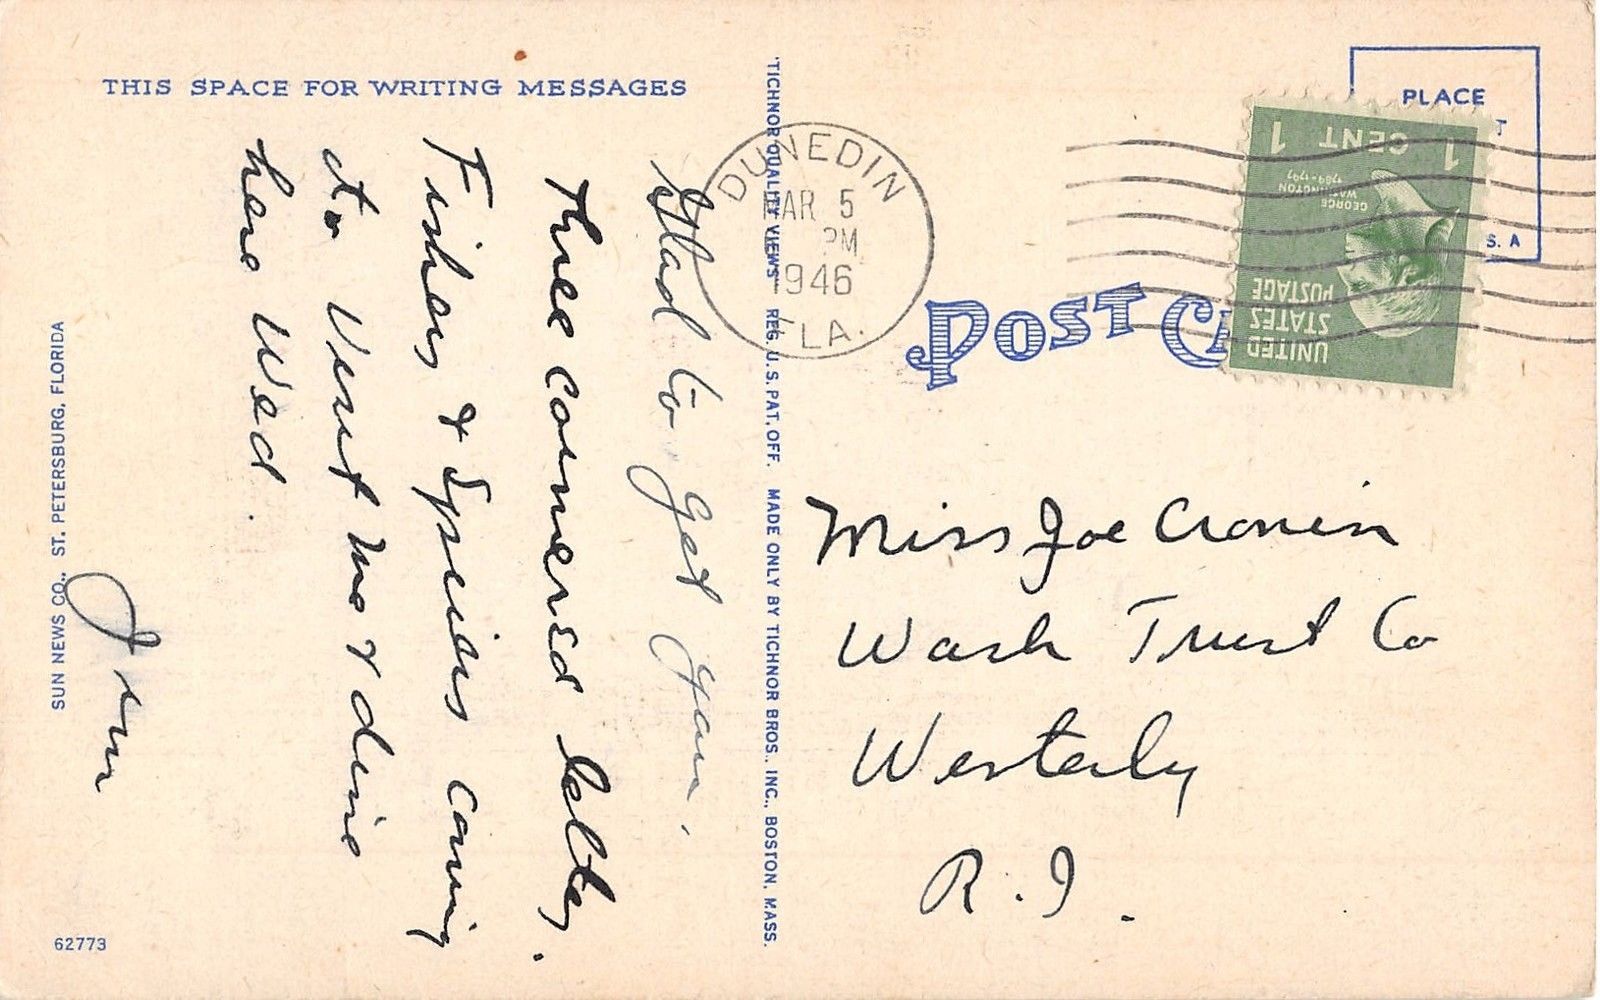 THIS SPACE FOR WRITING MESSAGES
Glad to get your
three cornered letter.
Fishers & Spiers coming
to visit me & dine
here Wed.
SUN NEWS CO., ST. PETERSBURG, FLORIDA
62773
"TICHNOR QUALITY VIEWS" REG. U.S. PAT. OFF. MADE ONLY BY TICHNOR BROS., INC., BOSTON, MASS.
DUNEDIN
MAR 5
PM
1946
FLA.
POST
PLACE
S. A
1 CENT 1
GEORGE
WASHINGTON
1789-1797
UNITED
STATES
POSTAGE
Miss Joe Cronin
Wash Trust Co
Westerly
R.I.